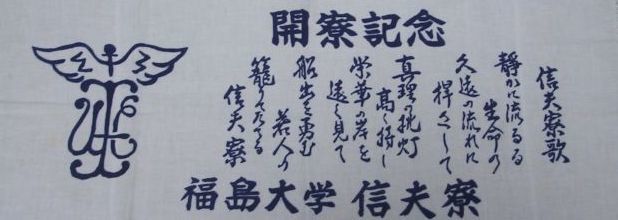 開寮記念
信夫寮歌
静かに流るる
生命の
久遠の流れに
桿さして
真理の松灯
高く掲し
栄華の岸を
遠く見て
船出を勇む
若人の
籠りてたてる
信夫寮
福島大学 信夫寮